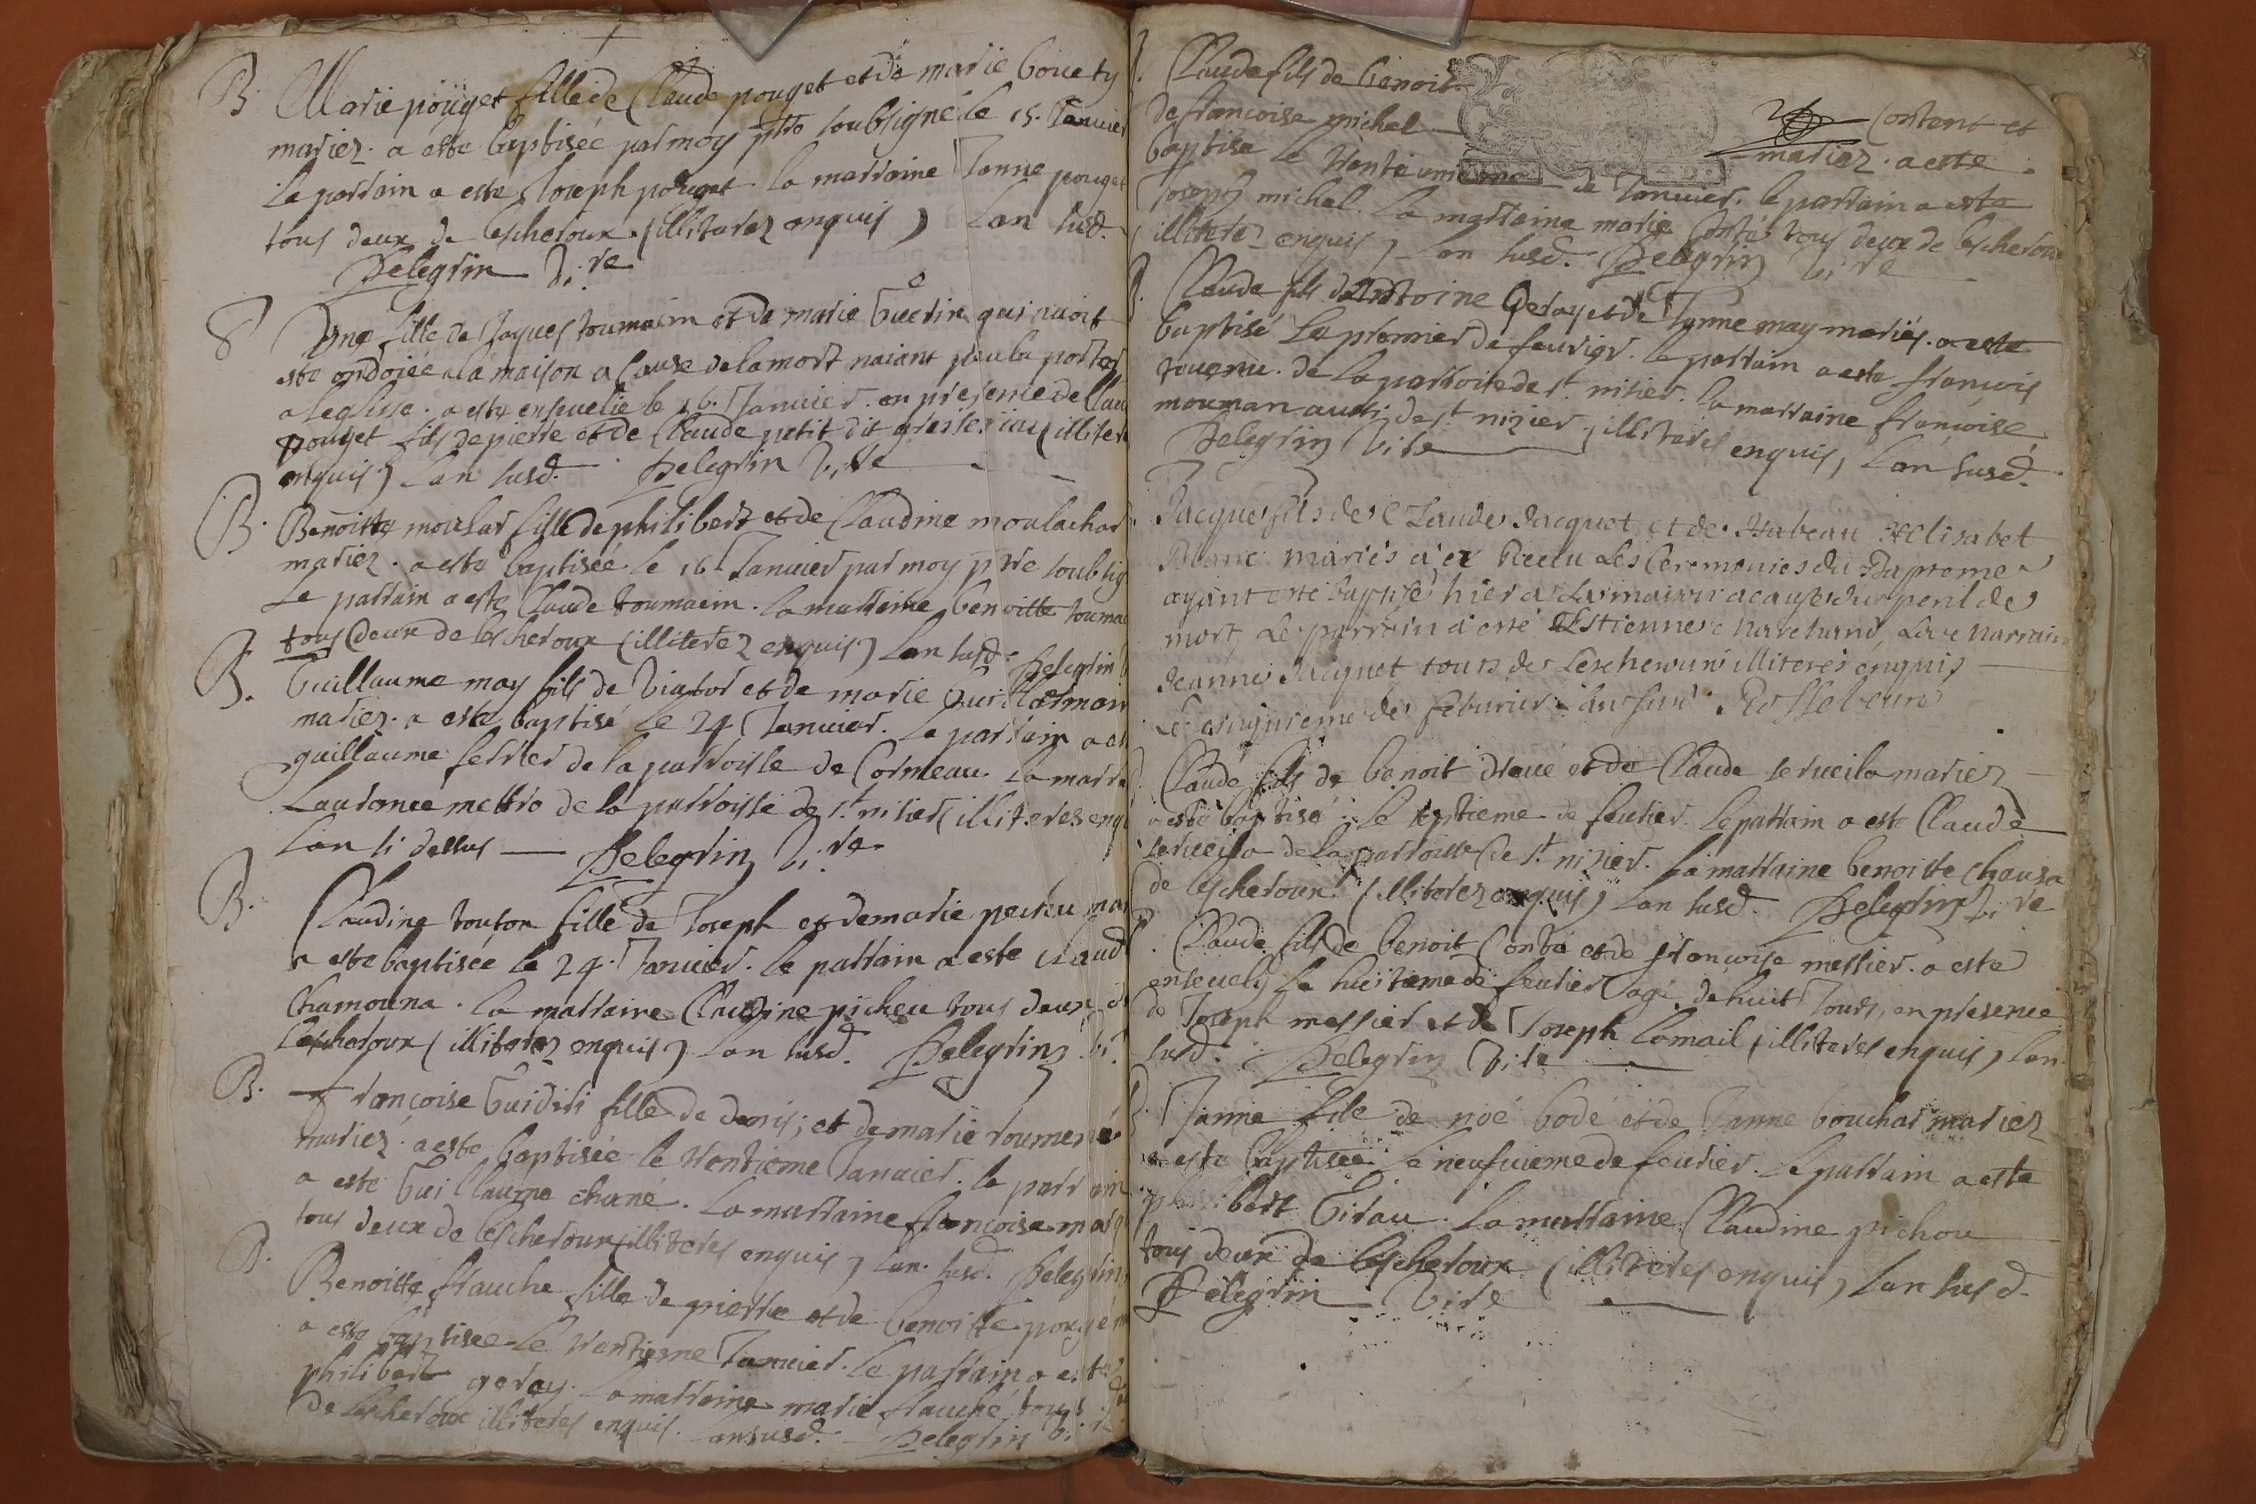 B. Marie pouget fille de Claude pouget et de marie bouety
mariez. a esté baptisée par moy ptre soubsigné le 15. Januier
Le parrain a esté Joseph pouget la marraine Janne pouget
tous deux de lescheroux (illiterez enquis) Lan susd.
Pelegrin Vi.re
S Une fille de Jaques toumain et de marie Guerin qui auoit
esté ondoiée a la maison a Cause de la mort naiant peu la porter
a leglise. a esté enseuelie le 16. Januier. en presence de Clau
pouget fils de pierre et de Claude petit dit (illiter
enquis) Lan susd. Pelegrin Vi.re
B. Benoitte fille de philibert et de Claudine moulachar
mariez. a esté baptisée le 16. Januier par moy ptre soubsig
Le parrain a esté Claude toumain. la marraine benoitte touma
tous deux de lescheroux (illiterez enquis) Lan susd. Pelegrin
B. Guillaume may fils de Viator et de marie
mariez. a esté baptisé le 24 Januier. Le parrain a es
guillaume ferrier de la parroisse de Cormeau. La marra
Laurence de la parroisse de st. nisier (illiteres enq
Lan si dessus Pelegrin Vi.re
B. Claudine touton fille de Joseph et de marie picheu mar
a esté baptisée le 24. Januier. le parrain a esté Claud
Chamouna. la marraine Claudine picheu tous deux de
lescheroux (illiterez enquis) Lan susd. Pelegrin Vi.
B. Francoise fille de denis; et de marie
mariez. a esté baptisée le trentieme Januier. le parrain
a esté Guillaume chané. La marraine francoise
tous deux de lescheroux (illiteres enquis) Lan. susd. Pelegrin
B. Benoitte frauche fille de pierre et de benoitte
a esté baptisée le trentiesme Januier. le parrain a esté
philibert geray. La marraine marie frauche tous
de lescheroux illiteres enquis. Lan susd. Pelegrin Vi.re
B. Claude fils de benoit Contant et
de francoise michel mariez. a esté
baptisé le trente de Januier. le parrain a esté
Joseph michel. La marraine marie Conté tous deux de lescheroux
(illiterez enquis) Lan susd. Pelegrin Vi.re
B. Claude fils dAntoine Geray et de Janne may mariés. a esté
baptisé Le premier de feurier. le parrain a esté francois
de la parroisse de st. nisier. la marraine francoise
aussi de st. nizier, (illiteres enquis) Lan susd.
Pelegrin Vi.re
Jacques fils de Claude Jacquet et de Isabeau Elisabet
Blanc mariés a Receu Les Ceremonies du Bapteme
ayant esté baptisé hier a La maison a cause du peril de
mort, Le parrain a esté Estienne Marchand, La Marraine
Jeanne Jacquet tous de Lescheroux illiteres enquis
Le cinquieme de feburier
Claude fils de benoit et de Claude serueila mariez
a esté baptisé. Le septieme de feurier. Le parrain a esté Claude
serueila de la parroisse de st. nizier. La marraine benoitte chausa
de lescheroux. (illiterez enquis) Lan susd. Pelegrin Vi.re
Claude fils de benoit Conté et de francoise messier. a esté
enseuely le huitieme de feurier agé de huit Jours, en presence
de Joseph messier et de Joseph Comail (illiteres enquis) Lan
susd. Pelegrin Vi.re
B. Janne fille de noé bodé et de Janne bouchar mariez
a esté baptisée. Le neufuieme de feurier. Le parrain a esté
philibert Girau. La marraine Claudine pichou
tous deux de lescheroux (illiteres enquis) Lan susd.
Pelegrin Vi.re